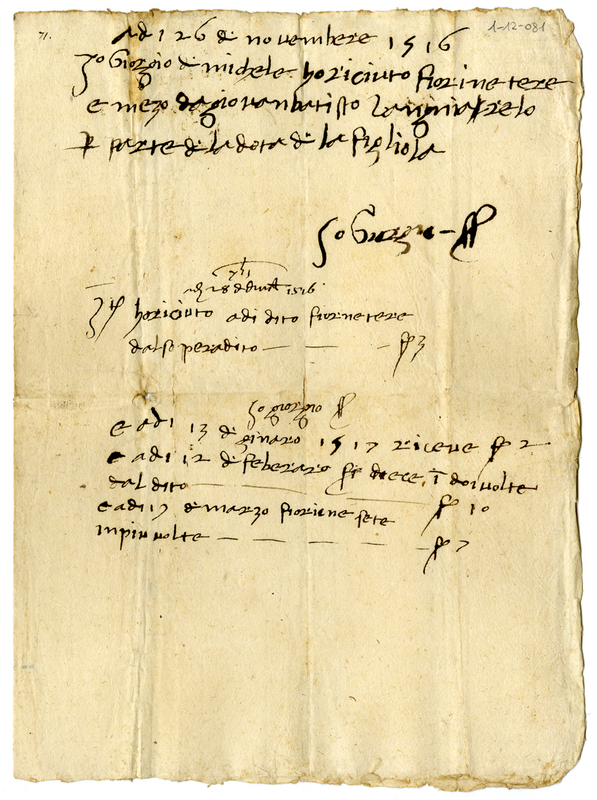 71.
1-12-081
adi 26 di novembere 1516
Jo Giorgio di michele ho riciuto fiorine tere
e mezo da giovanbatisto
p parte di la dota di la figliola
Jo Giorgio
adi 18 di 1516
ho riciuto a di dito fiorine tere
dal so peradito — — — 3
Jo giorgio
e adi 13 di ginaro 1517 riceve 2
e adi 12 di feberaro diece, i doi volte
dal dito — — 10
e adi 17 di marzo fiorine sete
in piu volte — — — — — 7